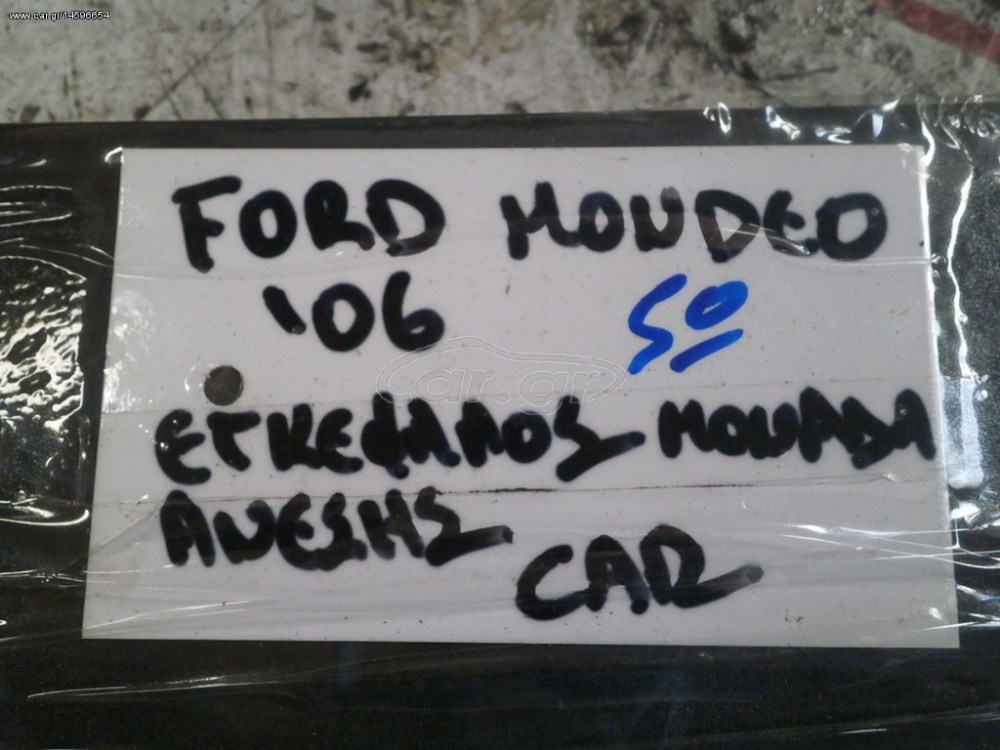 www.car.gr/14596654
FORD MONDEO
'06 50
car.gr
ΕΓΚΕΦΑΛΟΣ ΜΟΝΑΔΑ
ΑΝΕΣΗΣ
CAR